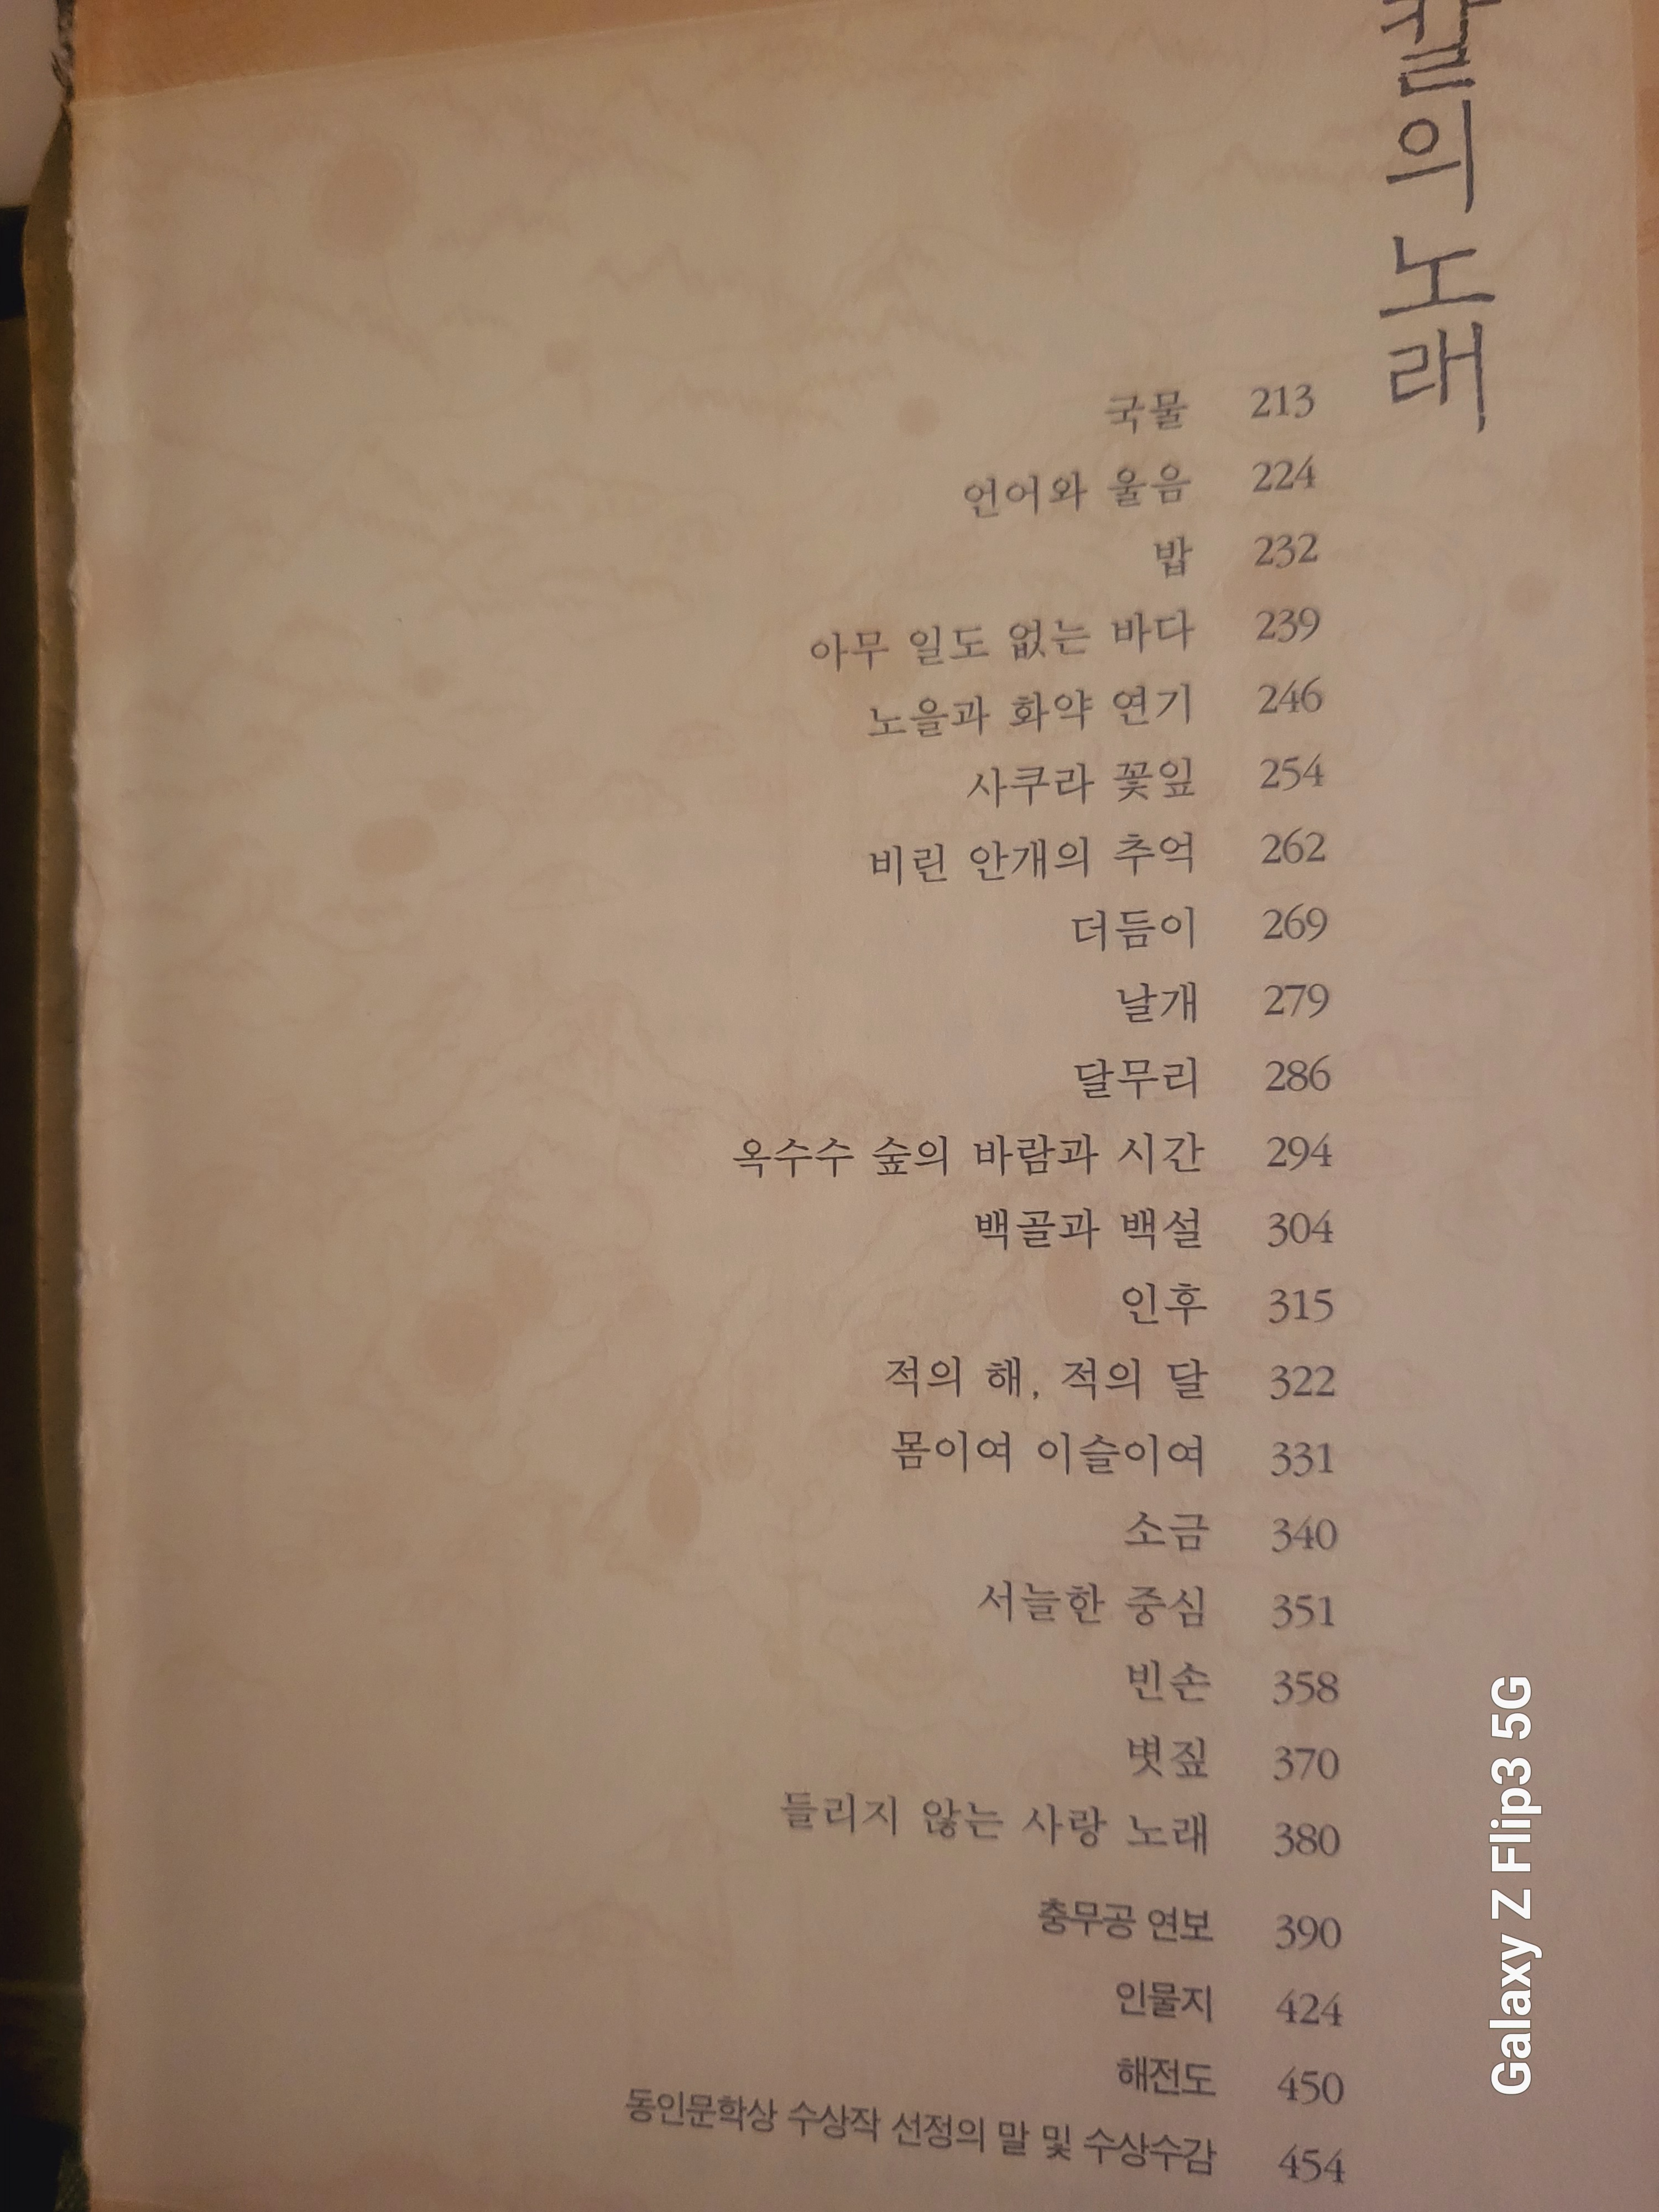 칼의 노래
국물 213
언어와 울음 224
밥 232
아무 일도 없는 바다 239
노을과 화약 연기 246
사쿠라 꽃잎 254
비린 안개의 추억 262
더듬이 269
날개 279
달무리 286
옥수수 숲의 바람과 시간 294
백골과 백설 304
인후 315
적의 해, 적의 달 322
몸이여 이슬이여 331
소금 340
서늘한 중심 351
빈손 358
볏짚 370
들리지 않는 사랑 노래 380
충무공 연보 390
인물지 424
해전도 450
동인문학상 수상작 선정의 말 및 수상수감 454
Galaxy Z Flip3 5G